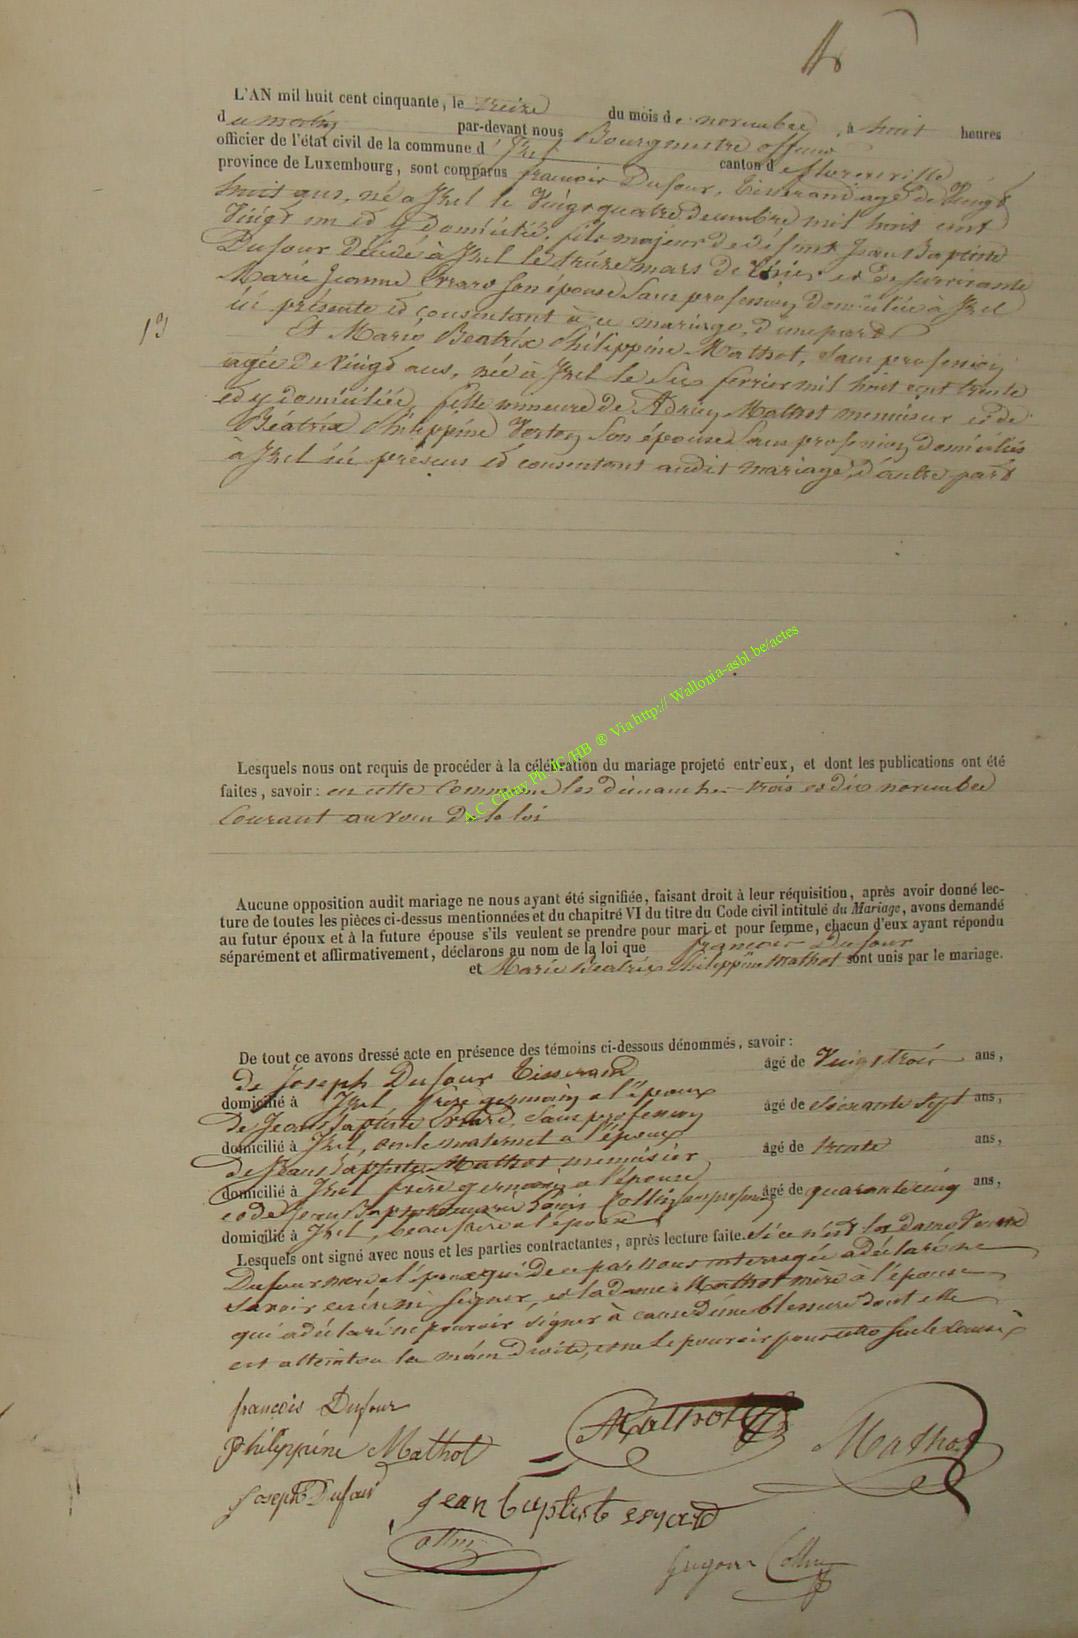 L'AN mil huit cent cinquante, le treize du mois de novembre, à huit heures
du matin par-devant nous Bourgmestre officier
officier de l'état civil de la commune d'Izel canton de florenville
province de Luxembourg, sont comparus françois Dufour, Tisserand agé de Vingt
huit ans, né a Izel le Vingt quatre decembre mil huit cent
Vingt un et y domicilié, fils majeur de défunt Jean Baptiste
Dufour décédé à Izel le treize mars de et de survivante
Marie Jeanne Erard son épouse sans profession, domiciliée à Izel
ici présente et consentant a ce mariage, d'une part
13
Et Marie Beatrix Philippine Mathot, sans profession
agée de Vingt ans, née à Izel le Six fevrier mil huit cent trente
et y domiciliée, fille mineure de Adrien Mathot menuisier et de
Béatrix Philippine son épouse sans profession, domiciliés
à Izel ici présens et consentant audit mariage, d'autre part
A.C. Chiny Ph. JG/HB ® Via http:// Wallonia-asbl.be/actes
Lesquels nous ont requis de procéder à la célébration du mariage projeté entr'eux, et dont les publications ont été
faites, savoir: en cette Commune les dimanches trois et dix novembre
Courant au voeu de la loi
Aucune opposition audit mariage ne nous ayant été signifiée, faisant droit à leur réquisition, après avoir donné lec-
ture de toutes les pièces ci-dessus mentionnées et du chapitre VI du titre du Code civil intitulé du Mariage, avons demandé
au futur époux et à la future épouse s'ils veulent se prendre pour mari et pour femme, chacun d'eux ayant répondu
séparément et affirmativement, déclarons au nom de la loi que françois Dufour
et Marie Beatrix Philippine Mathot sont unis par le mariage.
De tout ce avons dressé acte en présence des témoins ci-dessous dénommés, savoir:
de Joseph Dufour Tisserand âgé de Vingt trois ans,
domicilié à Izel frère germain a l'époux
de Jean Baptiste Erard, sans profession âgé de soixante sept ans,
domicilié à Izel, oncle maternel a l'époux
de Jean Baptiste Mathot menuisier âgé de trente ans,
domicilié à Izel frère germain a l'épouse
et de Jean Baptiste Louis Collin sans profession âgé de quarante cinq ans,
domicilié à Izel, beau frère a l'épouse
Lesquels ont signé avec nous et les parties contractantes, après lecture faite. Si ce n'est la dame Veuve
Dufour mere a l'époux qui de ce par nous interrogée a déclaré ne
savoir écrire ni signer, et la dame Mathot mère à l'épouse
qui a déclaré ne pouvoir signer à cause d'une blessure dont elle
est atteinte a la main droite, et ne le pouvoir pour cette seule cause
françois Dufour
Mathot
Mathot
Philippine Mathot
Joseph Dufour
Jean baptiste erard
Collin
Collin